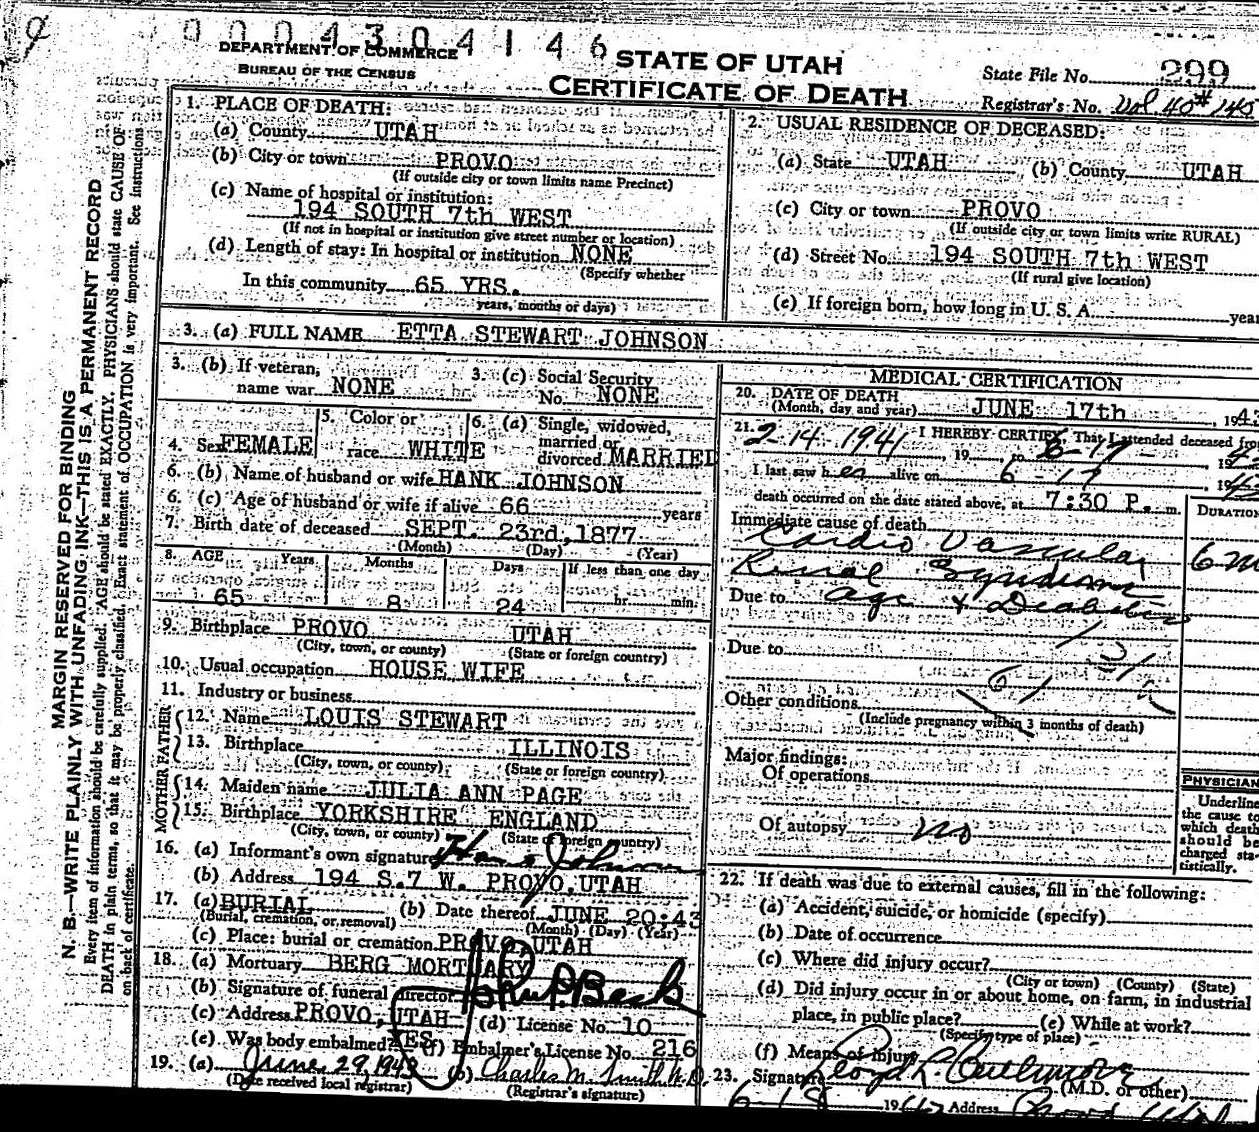 0004304146
DEPARTMENT OF COMMERCE
BUREAU OF THE CENSUS
STATE OF UTAH
CERTIFICATE OF DEATH
State File No. 299
Registrar's No. Vol. 40 # 140
MARGIN RESERVED FOR BINDING
N. B.—WRITE PLAINLY WITH UNFADING INK—THIS IS A PERMANENT RECORD
Every item of information should be carefully supplied. AGE should be stated EXACTLY. PHYSICIANS should state CAUSE OF
DEATH in plain terms, so that it may be properly classified. Exact statement of OCCUPATION is very important. See instructions
on back of certificate.
1. PLACE OF DEATH:
(a) County UTAH
(b) City or town PROVO
(If outside city or town limits name Precinct)
(c) Name of hospital or institution:
194 SOUTH 7th WEST
(If not in hospital or institution give street number or location)
(d) Length of stay: In hospital or institution NONE
(Specify whether
In this community 65 YRS.
years, months or days)
2. USUAL RESIDENCE OF DECEASED:
(a) State UTAH (b) County UTAH
(c) City or town PROVO
(If outside city or town limits write RURAL)
(d) Street No. 194 SOUTH 7th WEST
(If rural give location)
(e) If foreign born, how long in U. S. A. year
3. (a) FULL NAME ETTA STEWART JOHNSON
3. (b) If veteran, name war NONE
3. (c) Social Security No. NONE
4. Sex FEMALE
5. Color or race WHITE
6. (a) Single, widowed, married or divorced MARRIED
6. (b) Name of husband or wife HANK JOHNSON
6. (c) Age of husband or wife if alive 66 years
7. Birth date of deceased SEPT. 23rd, 1877
(Month) (Day) (Year)
8. AGE Years Months Days If less than one day
65 8 24 hr. min.
9. Birthplace PROVO UTAH
(City, town, or county) (State or foreign country)
10. Usual occupation HOUSE WIFE
11. Industry or business
FATHER
12. Name LOUIS STEWART
13. Birthplace ILLINOIS
(City, town, or county) (State or foreign country)
MOTHER
14. Maiden name JULIA ANN PAGE
15. Birthplace YORKSHIRE ENGLAND
(City, town, or county) (State or foreign country)
16. (a) Informant's own signature Johnson
(b) Address 194 S. 7 W. PROVO, UTAH
17. (a) BURIAL (b) Date thereof JUNE 20:43
(Burial, cremation, or removal) (Month) (Day) (Year)
(c) Place: burial or cremation PROVO, UTAH
18. (a) Mortuary BERG MORTUARY
(b) Signature of funeral director
(c) Address PROVO, UTAH (d) License No. 10
(e) Was body embalmed? YES (f) Embalmer's License No. 216
19. (a) June 29, 1943 (b) Charles M. Smith M.D.
(Date received local registrar) (Registrar's signature)
MEDICAL CERTIFICATION
20. DATE OF DEATH
(Month, day and year) JUNE 17th 1943
21. I HEREBY CERTIFY, That I attended deceased from
2-14-1941, 19 to 6-17- 19
I last saw her alive on 6-17 19
death occurred on the date stated above, at 7:30 P. m.
DURATION
Immediate cause of death
Cardio Vascular 6 m
Renal Syndrome
Due to age & Diabetes
Due to
61
Other conditions
(Include pregnancy within 3 months of death)
Major findings:
Of operations
Of autopsy no
PHYSICIAN
Underline
the cause to
which death
should be
charged sta-
tistically.
22. If death was due to external causes, fill in the following:
(a) Accident, suicide, or homicide (specify)
(b) Date of occurrence
(c) Where did injury occur?
(City or town) (County) (State)
(d) Did injury occur in or about home, on farm, in industrial
place, in public place? (e) While at work?
(Specify type of place)
(f) Means of injury
23. Signature Lloyd L. Cullimore
(M.D. or other)
6-18 19 Address Provo Utah